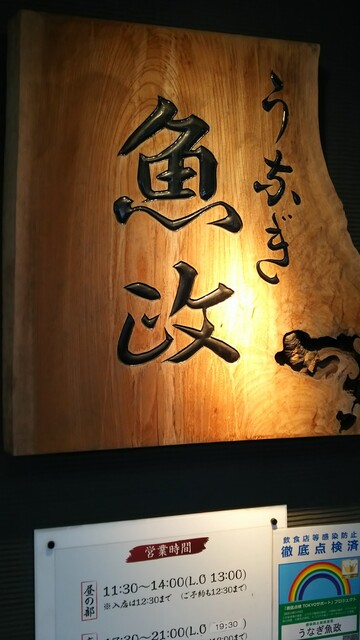 うなぎ
魚政
営業時間
昼の部
11:30～14:00(L.O 13:00)
※入店は12:30まで ご予約も12:30まで
17:30～21:00(L.O 19:30)
飲食店等感染防止
徹底点検済
うなぎ魚政